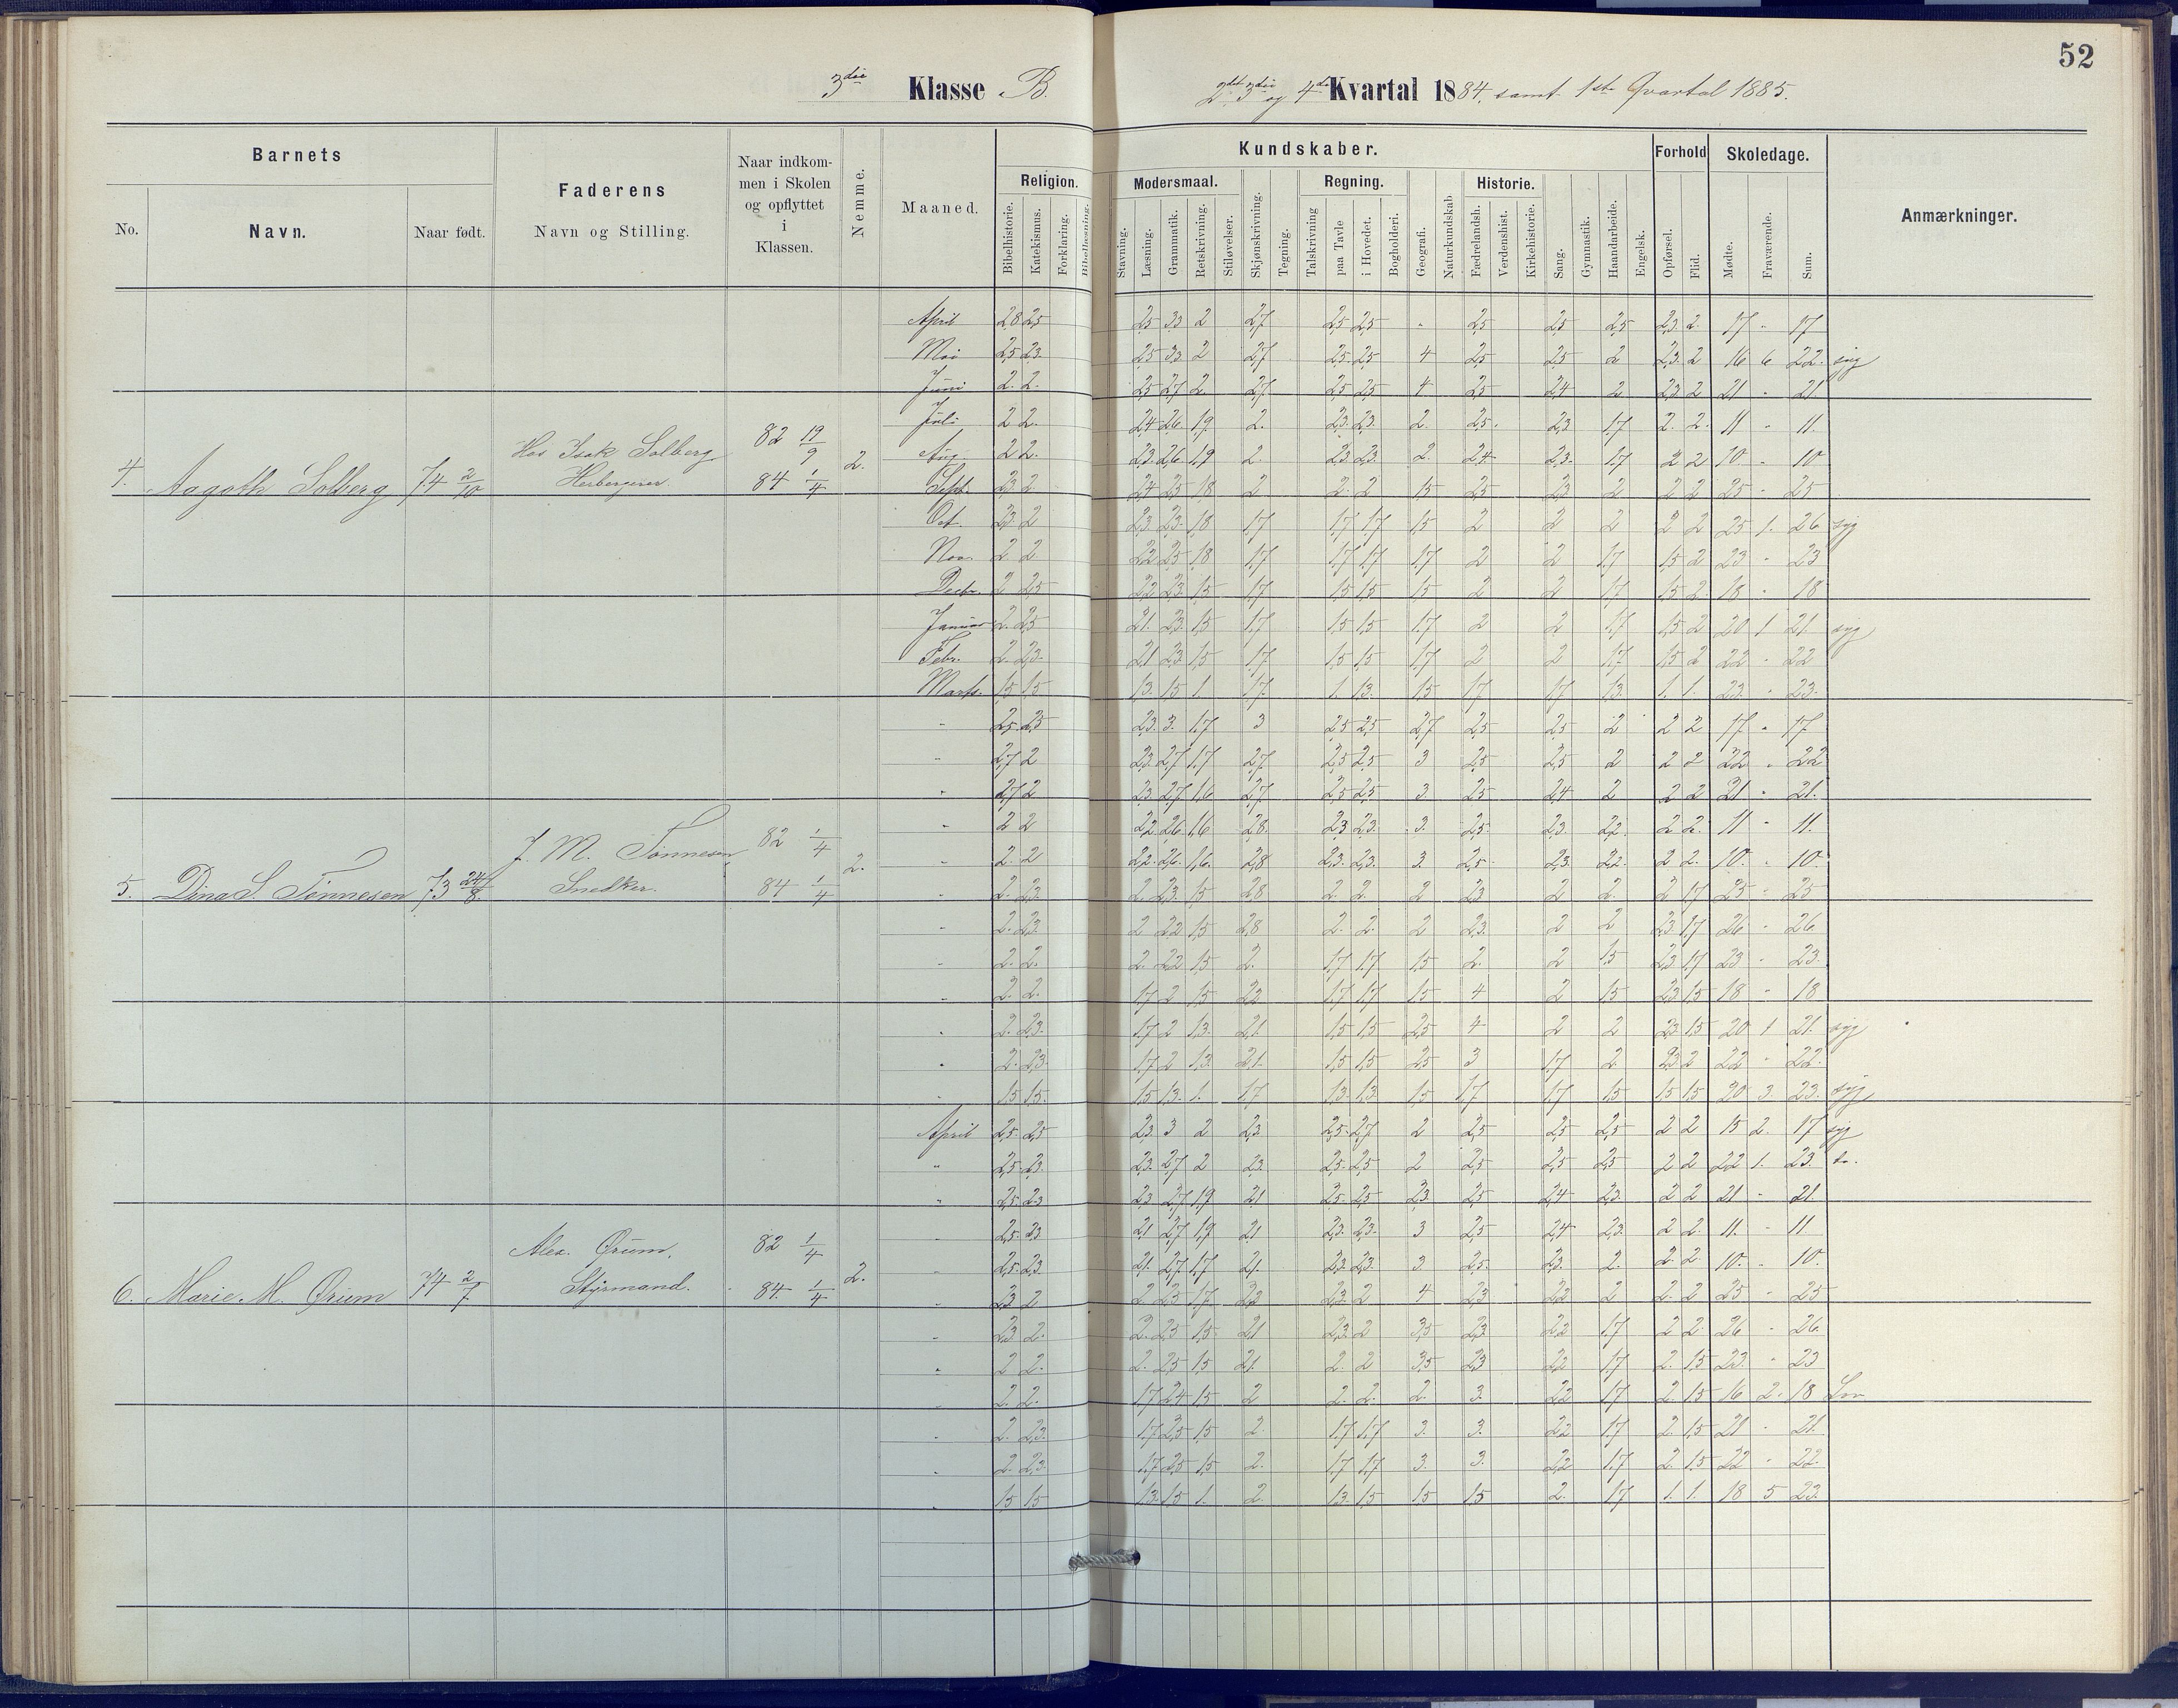 52
3die Klasse B.
2det 3die og 4de Kvartal 1884, samt 1ste Qvartal 1885.
Barnets
Faderens
Navn og Stilling.
Naar indkommen i Skolen og opflyttet i Klassen.
Nemme.
Maaned.
Religion.
Kundskaber.
Modersmaal.
Regning.
Historie.
Forhold
Skoledage.
Anmærkninger.
No.
Navn.
Naar født.
Bibelhistorie.
Katekismus.
Forklaring.
Bibellæsning.
Stavning.
Læsning.
Grammatik.
Retskrivning.
Stiløvelser.
Skjønskrivning.
Tegning.
Talskrivning
paa Tavle
i Hovedet.
Bogholderi.
Geografi.
Naturkundskab
Fædrelandsh.
Verdenshist.
Kirkehistorie.
Sang.
Gymnastik.
Haandarbeide.
Engelsk.
Opførsel.
Flid.
Mødte.
Fraværende.
Sum.
April 2,8 2,5 2,5 3,3 2 2,7 2,5 2,5 - 2,5 2,5 2,5 2,3 2 17 - 17
Mai 2,5 2,3 2,5 3,3 2 2,7 2,5 2,5 4 2,5 2,5 2 2,3 2 16 6 22 syg
Juni 2 2 2,5 2,7 2 2,7 2,5 2,5 4 2,5 2,4 2 2,3 2 21 - 21
Juli 2 2 2,4 2,6 1,9 2 2,3 2,3 2 2,5 2,3 1,7 2 2 11 - 11
4. Aagoth Solberg 74 2/10 Hos Isak Solberg Herbergerer. 82 19/9 84 1/4 2.
Aug. 2 2 2,3 2,6 1,9 2 2,3 2,3 2 2,4 2,3 1,7 2 2 10 - 10
Sept. 2,3 2 2,4 2,5 1,8 2 2 2 1,5 2,5 2,3 2 2 2 25 - 25
Oct. 2,3 2 2,3 2,3 1,8 1,7 1,7 1,7 1,5 2 2 2 2 2 25 1 26 syg
Nov. 2 2 2,2 2,5 1,8 1,7 1,7 1,7 1,7 2 2 1,7 1,5 2 23 - 23
Decbr. 2 2,5 2,2 2,3 1,5 1,7 1,5 1,5 1,5 2 2 1,7 1,5 2 18 - 18
Januar 2 2,5 2,1 2,3 1,5 1,7 1,5 1,5 1,7 2 2 1,7 1,5 2 20 1 21 syg
Febr. 2 2,3 2,1 2,3 1,5 1,7 1,5 1,5 1,7 2 2 1,7 1,5 2 22 - 22
Marts. 1,5 1,5 1,3 1,5 1 1,7 1 1,3 1,5 1,7 1,7 1,3 1 1 23 - 23
" 2,5 2,5 2,3 3 1,7 3 2,5 2,5 2,7 2,5 2,5 2 2 2 17 - 17
" 2,7 2 2,3 2,7 1,7 2,7 2,5 2,5 3 2,5 2,5 2 2 2 22 - 22
" 2,7 2 2,3 2,7 1,6 2,7 2,5 2,5 3 2,5 2,4 2 2 2 21 - 21
" 2 2 2,2 2,6 1,6 2,8 2,3 2,3 3 2,5 2,3 2,2 2 2 11 - 11
5. Dina S. Tønnesen 73 24/8 J. M. Tønnesen Snedker. 82 1/4 84 1/4 2.
" 2 2 2,2 2,6 1,6 2,8 2,3 2,3 3 2,5 2,3 2,2 2 2 10 - 10
" 2 2,3 2 2,3 1,5 2,8 2 2 2 2,3 2 2 2 1,7 25 - 25
" 2 2,3 2 2,2 1,5 2,8 2 2 2 2,3 2 2 2,3 1,7 26 - 26
" 2 2 2 2,2 1,5 2 1,7 1,7 1,5 2 2 1,5 2,3 1,7 23 - 23
" 2 2 1,7 2 1,5 2,2 1,7 1,7 1,5 4 2 1,5 2,3 1,5 18 - 18
" 2 2,3 1,7 2 1,3 2,1 1,5 1,5 2,5 4 2 2 2,3 1,5 20 1 21 syg
" 2 2,3 1,7 2 1,3 2,1 1,5 1,5 2,5 3 1,7 2 2,3 2 22 - 22
" 1,5 1,5 1,5 1,3 1 1,7 1,3 1,3 1,5 1,7 1,7 1,5 1,5 1,5 20 3 23 syg
April 2,5 2,5 2,3 3 2 2,3 2,5 2,7 2 2,5 2,5 2,5 2 2 15 2 17 syg
" 2,5 2,3 2,3 2,7 2 2,3 2,5 2,5 2 2,5 2,5 2,5 2 2 22 1 23 do.
" 2,5 2,3 2,3 2,7 1,9 2,1 2,5 2,5 2,3 2,5 2,4 2,3 2 2 21 - 21
" 2,5 2,3 2,1 2,7 1,9 2,1 2,3 2,3 3 2,5 2,4 2,3 2 2 11 - 11
6. Marie M. Ørum 74 2/7 Alex. Ørum, Styrmand. 82 1/4 84 1/4 2.
" 2,5 2,3 2,1 2,7 1,7 2,1 2,3 2,3 3 2,5 2,3 2 2 2 10 - 10
" 2,3 2 2 2,5 1,7 2,2 2,3 2 4 2,3 2,2 2 2 2 25 - 25
" 2,3 2 2 2,5 1,5 2,1 2,3 2 3,5 2,3 2,2 1,7 2 2 26 - 26
" 2 2 2 2,5 1,5 2,1 2 2 3,5 2,3 2,2 1,7 2 1,5 23 - 23
" 2 2 1,7 2,4 1,5 2 2 2 2 3 2,2 1,7 2 1,5 16 2 18 Lov
" 2 2,3 1,7 2,5 1,5 2 1,7 1,7 3 3 2,2 1,7 2 1,5 21 - 21
" 2 2,3 1,7 2,5 1,5 2 1,7 1,7 3 3 2,2 1,7 2 1,5 22 - 22
" 1,5 1,5 1,3 1,5 1 2 1,3 1,5 1,5 1,5 2 1,7 1 1 18 5 23